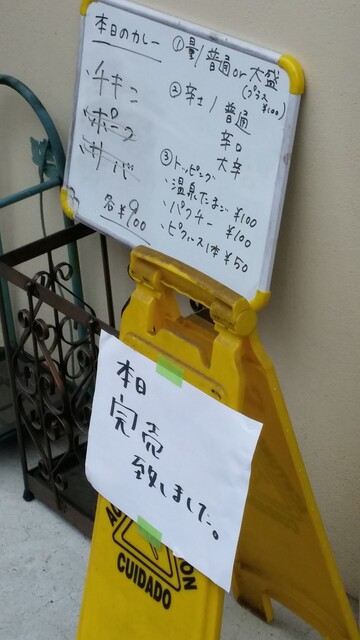 本日のカレー
チキン
ポーク
サバ
各¥900
①量/普通or大盛
(プラス¥100)
②辛さ/普通
辛口
大辛
③トッピング
温泉たまご ¥100
パクチー ¥100
ピクルス1本 ¥50
本日
完売
致しました。
CUIDADO